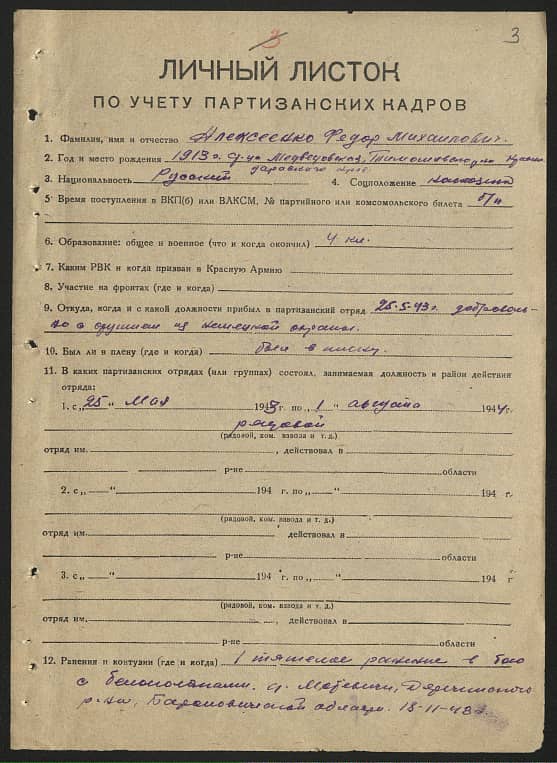 3 3
ЛИЧНЫЙ ЛИСТОК
ПО УЧЕТУ ПАРТИЗАНСКИХ КАДРОВ
1. Фамилия, имя и отчество Алексеенко Федор Михайлович.
2. Год и место рождения 1913 г. д-ца Медведовская, Тимошевского р-на Красно-
дарского края.
3. Национальность Русский 4. Соцположение колхозник
5. Время поступления в ВКП(б) или ВЛКСМ, № партийного или комсомольского билета б/п
6. Образование: общее и военное (что и когда окончил) 4 кл.
7. Каким РВК и когда призван в Красную Армию
8. Участие на фронтах (где и когда)
9. Откуда, когда и с какой должности прибыл в партизанский отряд 25-5-43 г. доброволь-
но с оружием из немецкой охраны.
10. Был ли в плену (где и когда) был в плену.
11. В каких партизанских отрядах (или группах) состоял, занимаемая должность и район действия
отряда:
1. с „25 “ Мая 1943 г. по „1 “ августа 1944 г.
рядовой
(рядовой, ком. взвода и т. д.)
отряд им. , действовал в
р-не области
2. с „ — “ 194 г. по „ — “ 194 г.
(рядовой, ком. взвода и т. д.)
отряд им. действовал в
р-не области
3. с „ — “ 194 г. по „ — “ 194 г
(рядовой, ком. взвода и т. д.)
отряд им. , действовал в
р-не области
12. Ранения и контузии (где и когда) 1 тяжелое ранение в бою
с белополяками. д. Мотевичи, Дятчинского
р-на, Барановичской области. 18-11-43 г.